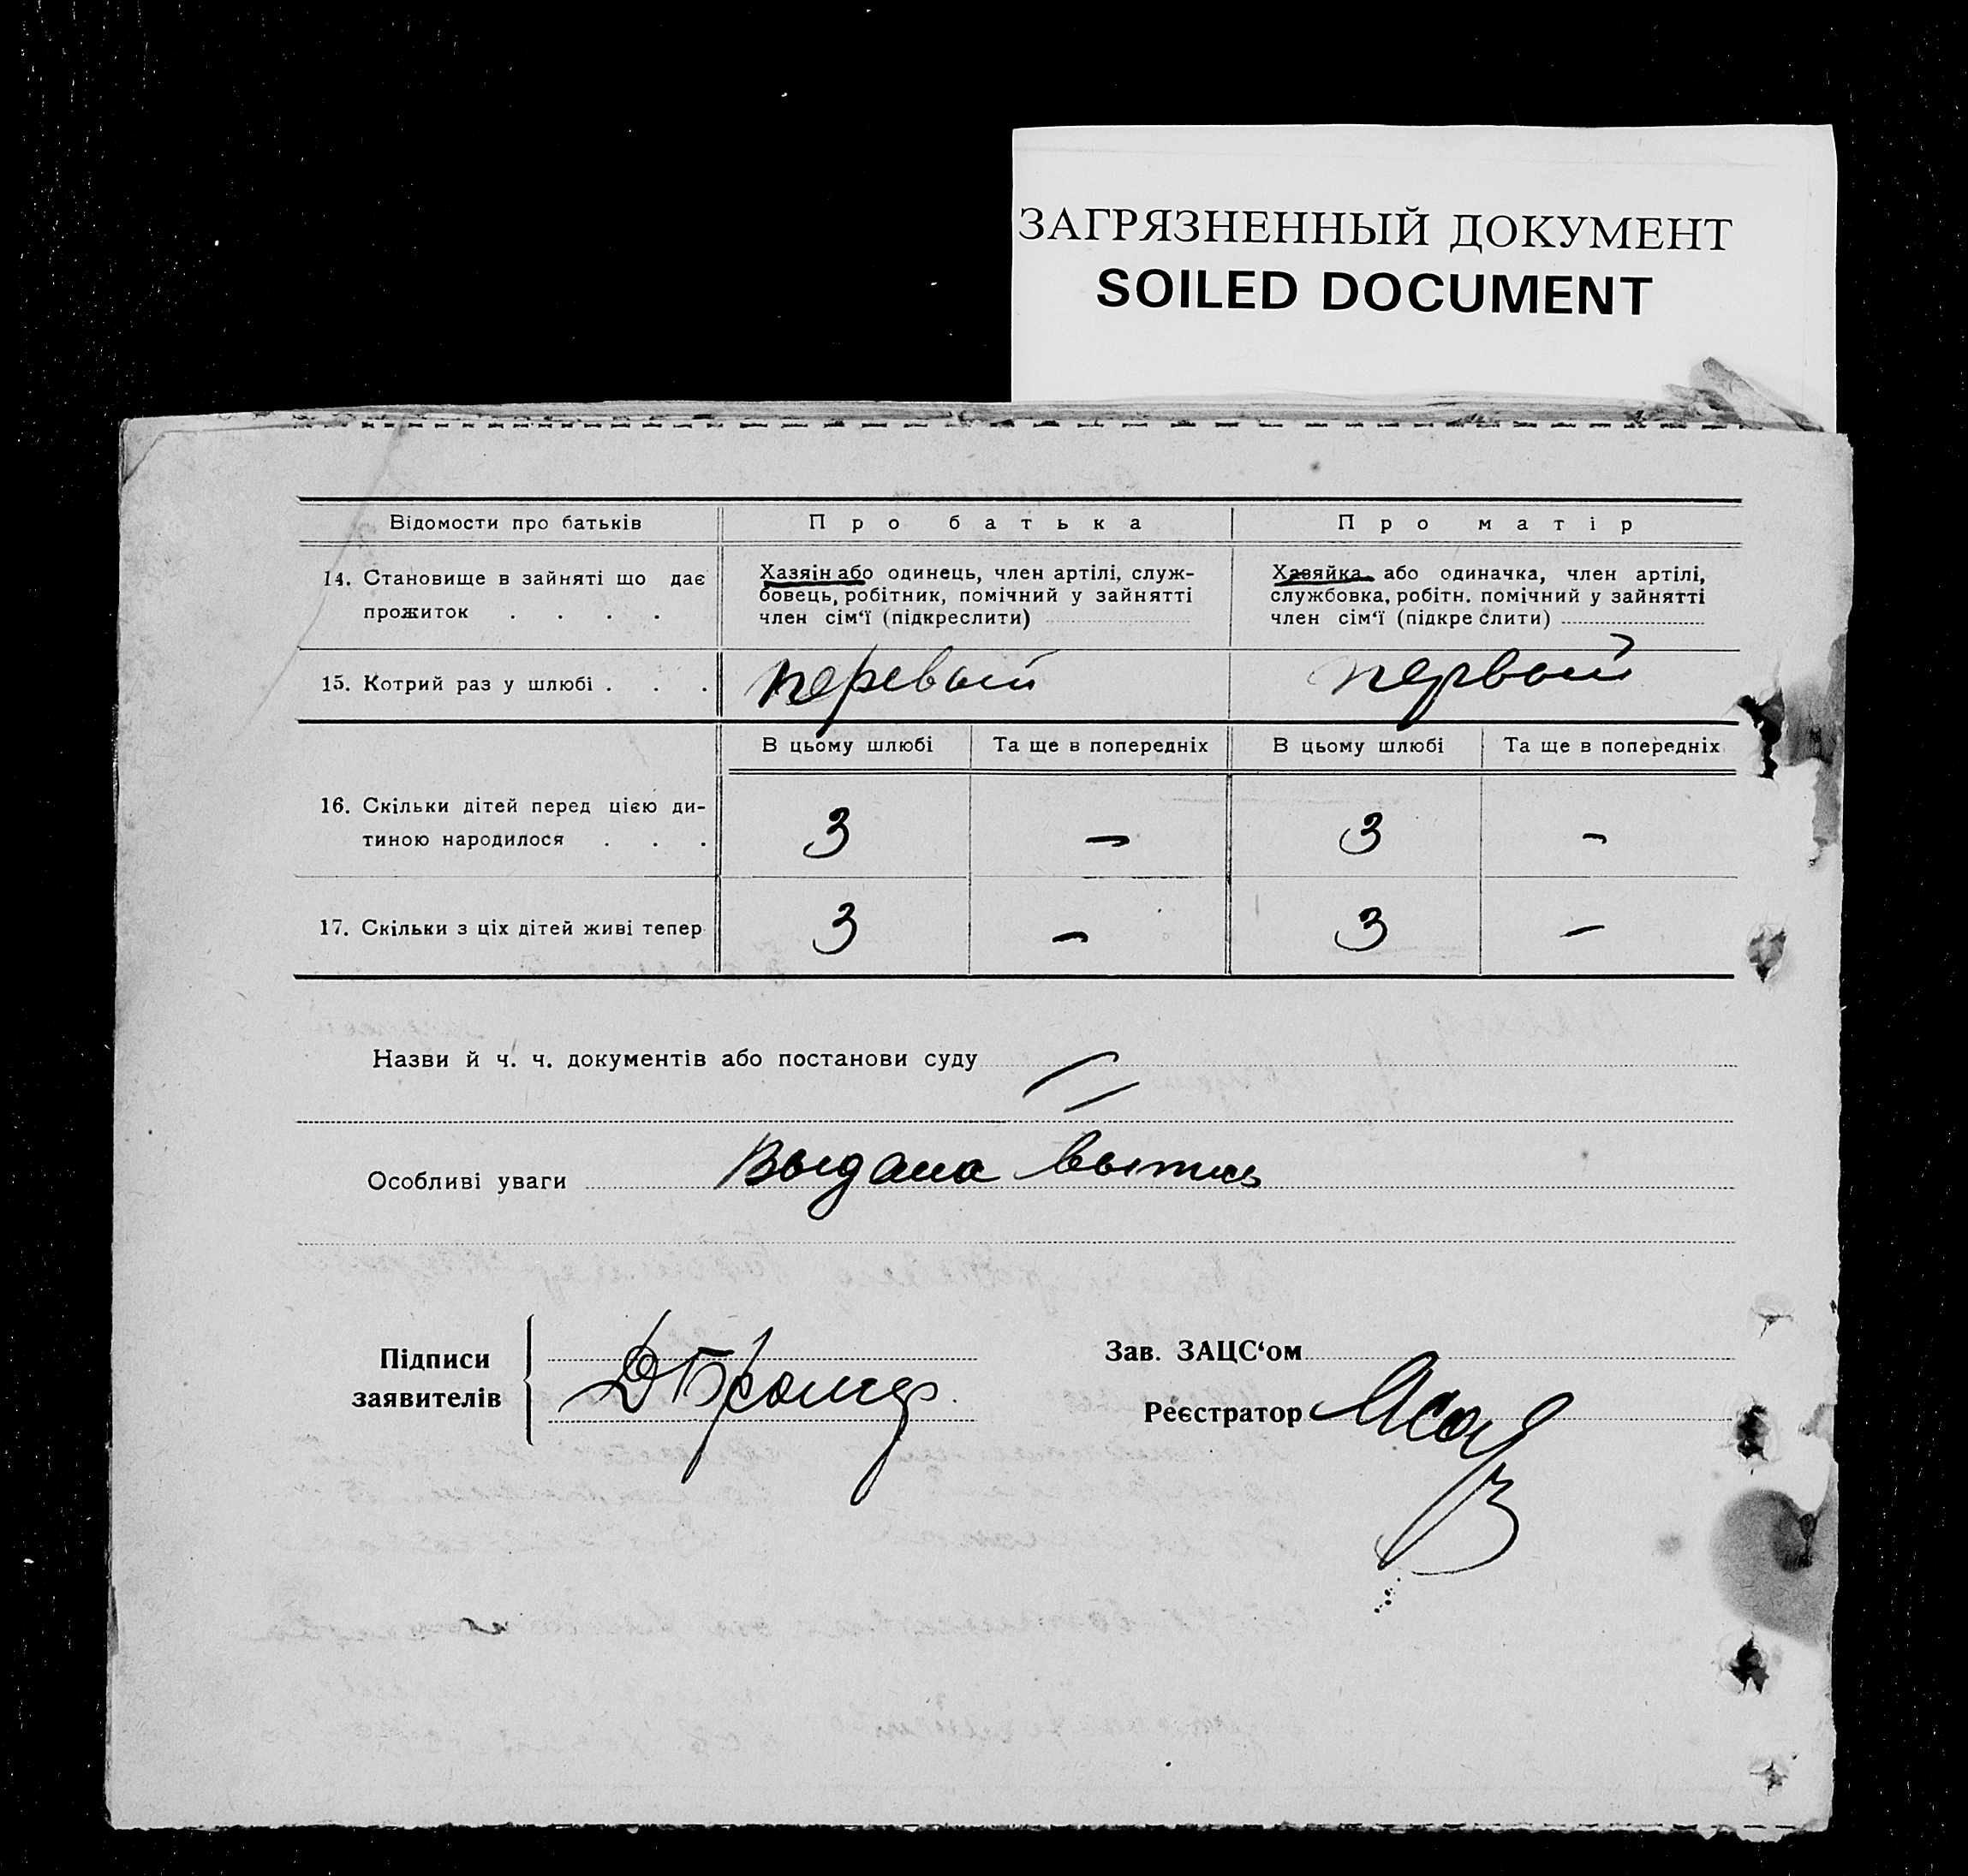 ЗАГРЯЗНЕННЫЙ ДОКУМЕНТ
SOILED DOCUMENT
Відомости про батьків Про батька Про матір
14. Становище в зайняті що дає прожиток . . . .
Хазяїн або одинець, член артілі, служ-
бовець, робітник, помічний у зайнятті
член сім‘ї (підкреслити)
Хазяйка або одиначка, член артілі,
службовка, робітн. помічний у зайнятті
член сім‘ї (підкреслити)
15. Котрий раз у шлюбі . . . перевый первый
В цьому шлюбі Та ще в попередніх В цьому шлюбі Та ще в попередніх
16. Скільки дітей перед цією ди-
тиною народилося . . . 3 — 3 -
17. Скільки з ціх дітей живі тепер 3 — 3 —
Назви й ч. ч. документів або постанови суду
Особливі уваги Выдана выпись
Підписи
заявителів
Зав. ЗАЦС‘ом
Реєстратор